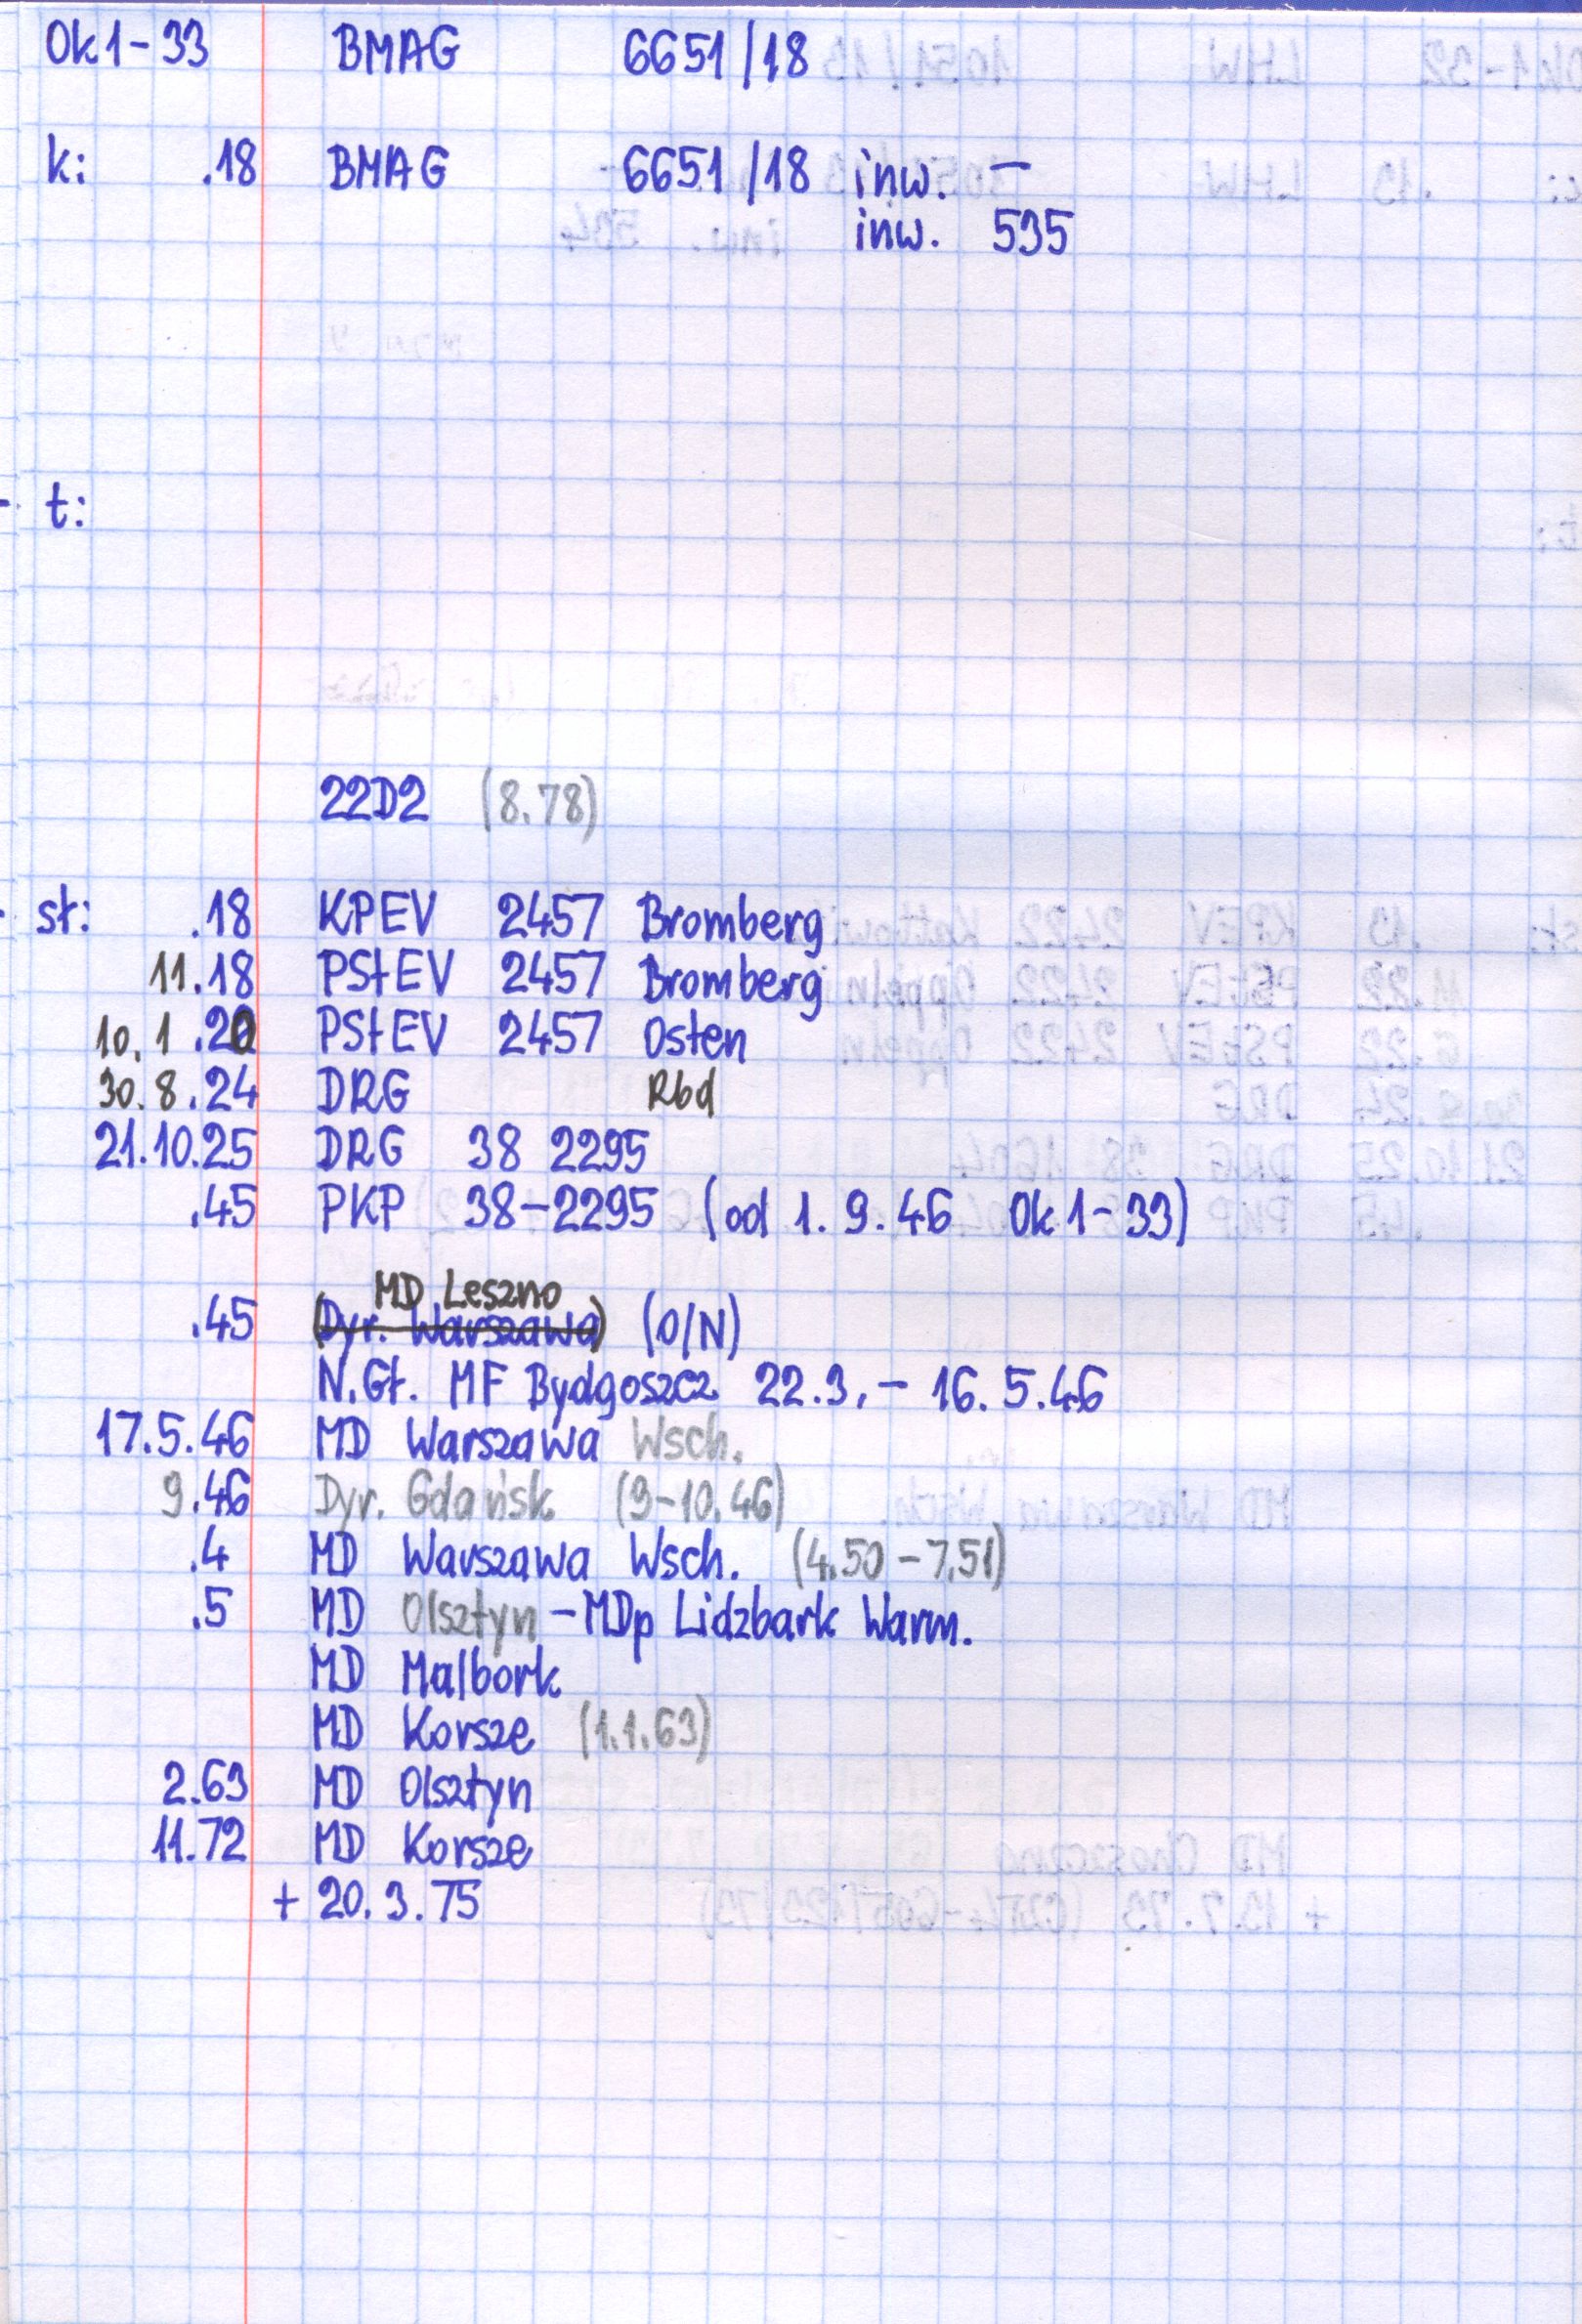 Ok1-33 BMAG 6651/18
k: .18 BMAG 6651/18 inw. —
inw. 535
- t:
22D2 (8.78)
- sł: .18 KPEV 2457 Bromberg
11.18 PStEV 2457 Bromberg
10.1.20 PStEV 2457 Osten
30.8.24 DRG Rbd
21.10.25 DRG 38 2295
.45 PKP 38-2295 (od 1.9.46 Ok1-33)
MD Leszno
.45 (Dyr. Warszawa) (O/N)
N.Gł. MF Bydgoszcz 22.3.- 16.5.46
17.5.46 MD Warszawa Wsch.
9.46 Dyr. Gdańsk (9-10.46)
.4 MD Warszawa Wsch. (4.50-7.51)
.5 MD Olsztyn - MDp Lidzbark Warm.
MD Malbork
MD Korsze (1.1.63)
2.63 MD Olsztyn
11.72 MD Korsze
+ 20.3.75